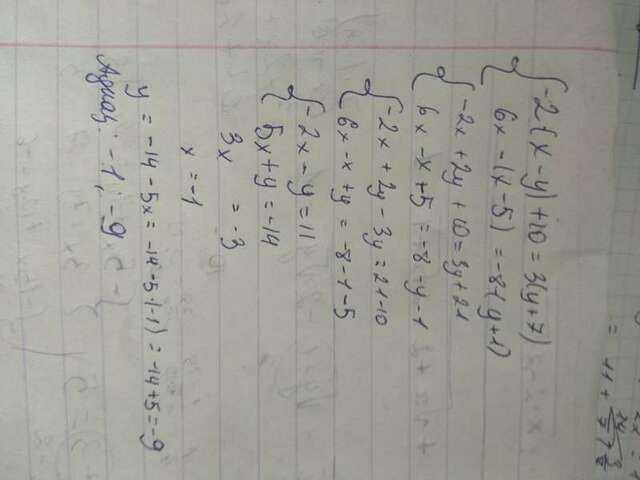 -2(x-y)+10=3(y+7)
6x-(x-5)=-8-(y+1)
-2x+2y+10=3y+21
6x-x+5=-8-y-1
-2x+2y-3y=21-10
6x-x+y=-8-1-5
-2x-y=11
5x+y=-14
3x = -3
x=-1
y = -14-5x = -14-5·(-1) = -14+5 = -9
Адказ: -1; -9